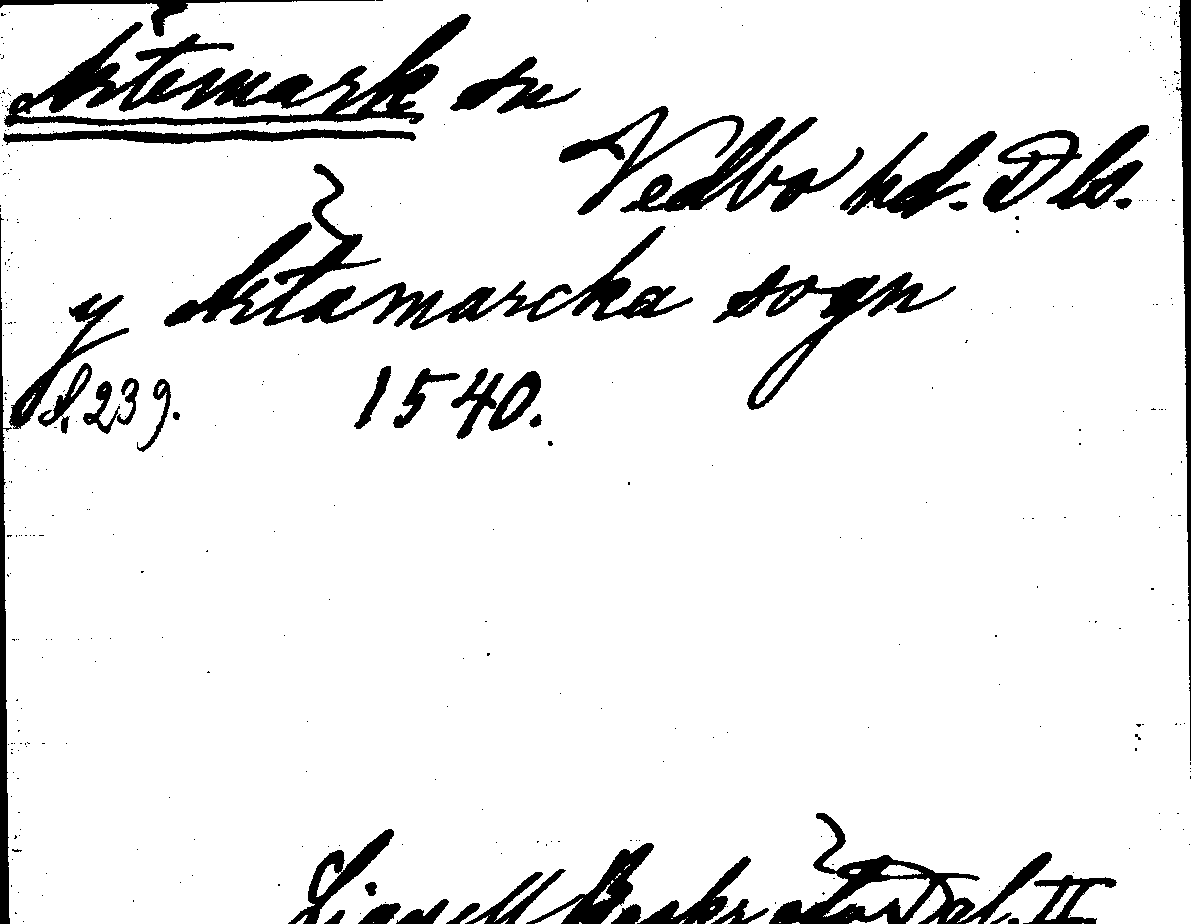 Ärtemark sn
Vedbo hd. Dls.
y Årtamarcka sogn
S. 239. 1540.
Lignell Beskr. öfver Dal. II